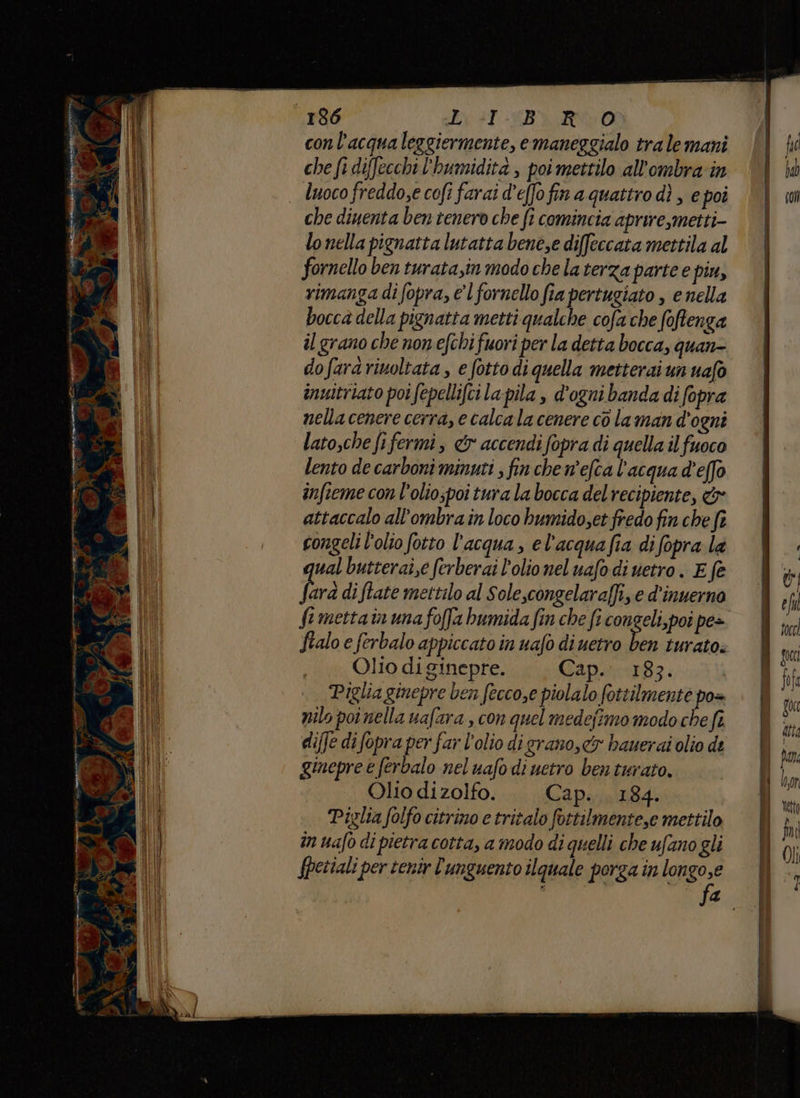 186 L I B R O
con l'acqua leggiermente, e maneggialo tra le mani
che ſi diſſecchi l'humidità , poi mettilo all'ombra in
luoco freddo,e coſi farai d'eſſo fin a quattro dì , e poi
che diuenta ben tenero che ſi comincia aprire,metti-
lo nella pignatta lutatta bene,e diſſeccata mettila al
fornello ben turata,in modo che la terza parte e piu,
rimanga di ſopra, e'l fornello ſia pertugiato , e nella
bocca della pignatta metti qualche coſa che ſoſtenga
il grano che non eſchi fuori per la detta bocca, quan-
do ſarà riuoltata , e ſotto di quella metterai un uaſo
inuitriato poi ſepelliſci la pila , d'ogni banda di ſopra
nella cenere cerra, e calca la cenere cō la man d'ogni
lato,che ſi fermi , & accendi ſopra di quella il fuoco
lento de carboni minuti , fin che n'eſca l'acqua d'eſſo
inſieme con l'olio;poi tura la bocca del recipiente, &
attaccalo all'ombra in loco humido,et fredo fin che ſi
congeli l'olio ſotto l'acqua , e l'acqua ſia di ſopra la
qual butterai,e ſerberai l'olio nel uaſo di uetro . E ſe
ſarà di ſtate mettilo al Sole,congelaraſſi, e d'inuerno
ſi metta in una foſſa humida fin che ſi congeli,poi pe-
ſtalo e ſerbalo appiccato in uaſo di uetro ben turato.
Olio di ginepre. Cap. 183.
Piglia ginepre ben ſecco,e piolalo ſottilmente po-
nilo poi nella uaſara , con quel medeſimo modo che ſi
diſſe di ſopra per far l'olio di grano,& hauerai olio de
ginepre e ſerbalo nel uaſo di uetro ben turato.
Olio di zolfo. Cap. 184.
Piglia ſolfo citrino e tritalo ſottilmente,e mettilo
in uaſo di pietra cotta, a modo di quelli che uſano gli
ſpetiali per tenir l'unguento ilquale porga in longo,e
fa